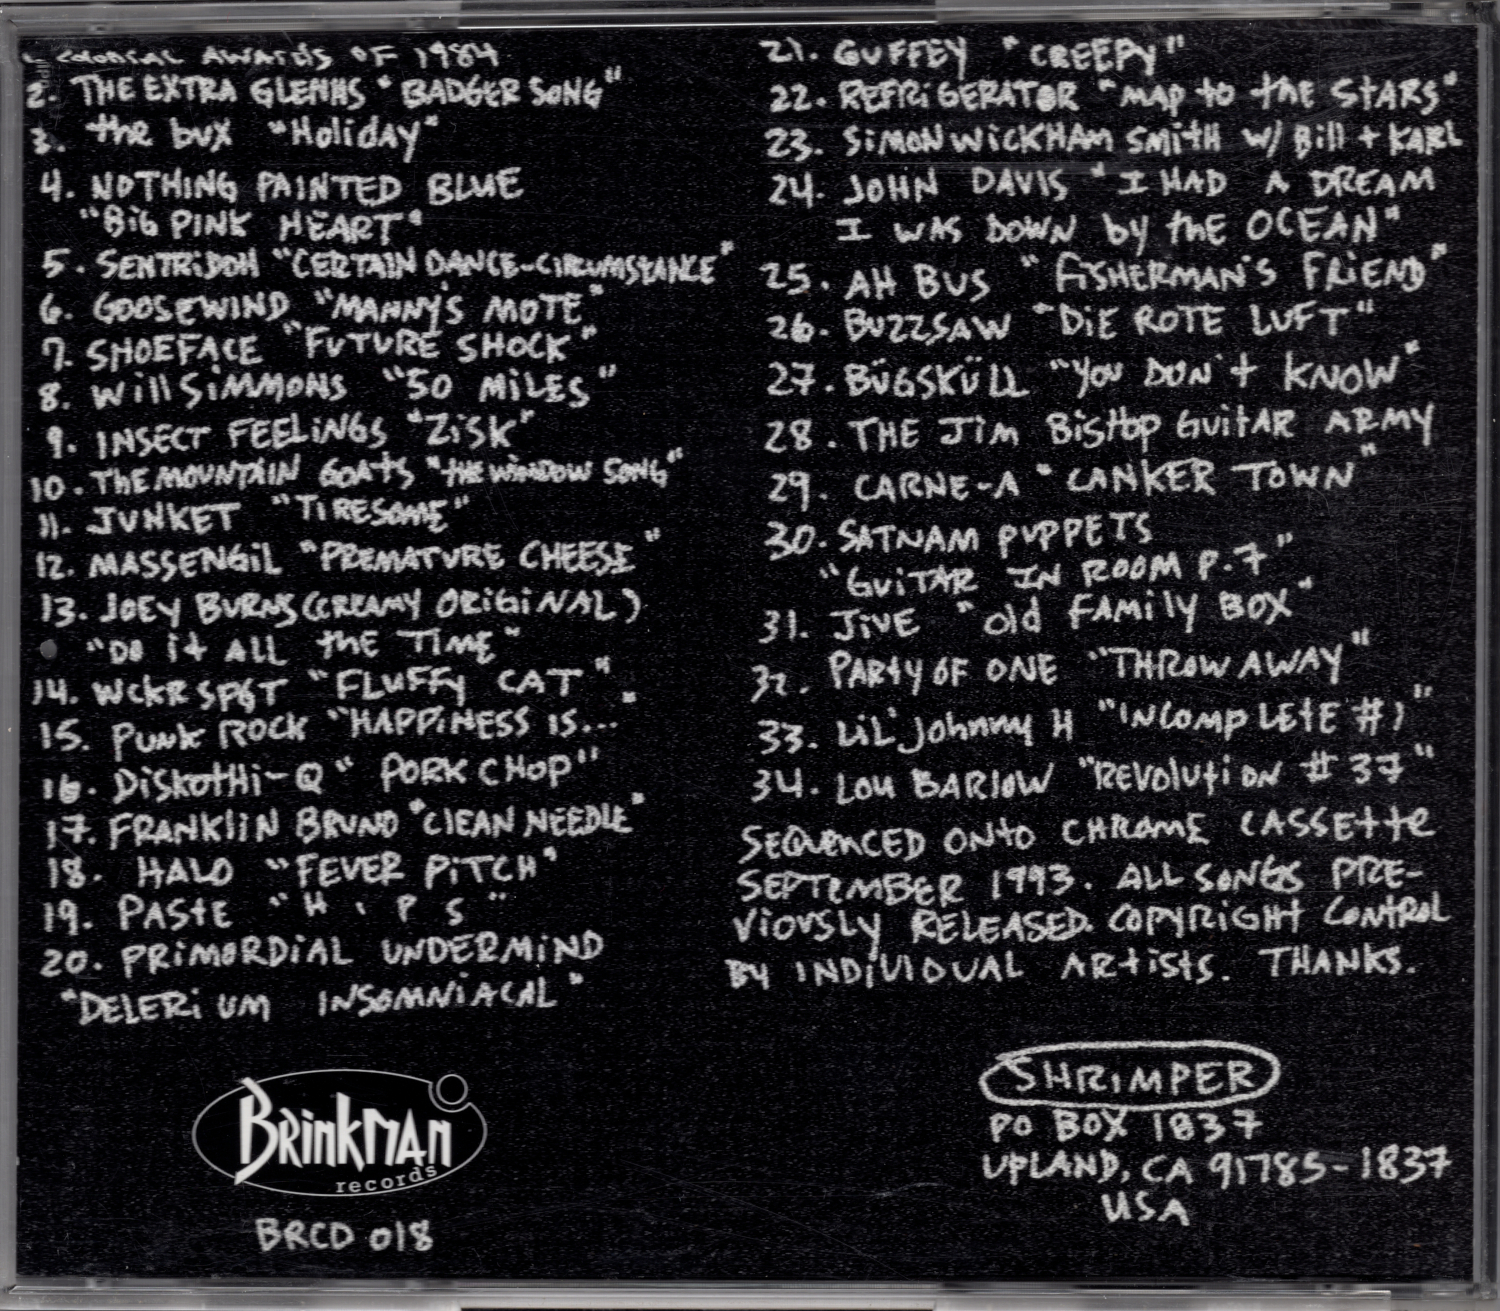 COLONIAL AWARDS OF 1984
2. THE EXTRA GLENNS "BADGER SONG"
3. the bux "Holiday"
4. NOTHING PAINTED BLUE
"BiG PINK HEART"
5. SENTRiDOH "CERTAIN DANCE-CIRCUMSTANCE"
6. GOOSEWIND "MANNY'S MOTE"
7. SHOEFACE "FUTURE SHOCK"
8. Will SiMMONS "50 MiLES"
9. INSECT FEELiNGS "ZiSK"
10. THE MOUNTAIN GOATS "THE WINDOW SONG"
11. JUNKET "TiRESOME"
12. MASSENGiL "PREMATURE CHEESE"
13. JOEY BURNS (CREAMY ORiGiNAL)
"DO it ALL the TIME"
14. WCKR SPGT "FLUFFy CAT"
15. PUNK ROCK "HAPPiNESS IS...
16. DiSKOTHi-Q "PORK CHOP"
17. FRANKliN BRUNO "ClEAN NEEDLE"
18. HALO "FEVER PiTCH"
19. PASTE "H I P S"
20. PRiMORDiAL UNDERMiND
"DELERiUM INSOMNiACAL"
21. GUFFEY "CREEPy"
22. REFRiGERATOR "MAP to the STARS"
23. SiMON WiCKHAM SMitH W/ Bill + KARL
24. JOHN DAVIS "I HAD A DREAM
I WAS DOWN by the OCEAN"
25. AH BUS "FiSHERMAN'S FRiEND"
26. BUZZSAW "DiE ROTE LUFT"
27. BÜGSKÜLL "YOU DON't KNOW"
28. THE JiM BiSHOP GUitAR ARMY
29. CARNE-A "CANKER TOWN"
30. SATNAM PUPPETS
"GUiTAR IN ROOM P.7"
31. JiVE "Old FAMily BOX"
32. PARtY OF ONE "THROW AWAY"
33. LiL' Johnny H "INCOMPLETE #1"
34. LOU BARlOW "REVOlUtiON #37"
SEQUENCED ONtO CHROME CASSEtte
SEPTEMBER 1993. ALL SONGS PRE-
ViOUSLy RELEASED. COPYRiGHt CONtROL
BY INDiViDUAL ARtiSts. THANKS.
BRiNKMAN
records
BRCD 018
SHRiMPER
PO BOX 1837
UPLAND, CA 91785-1837
USA